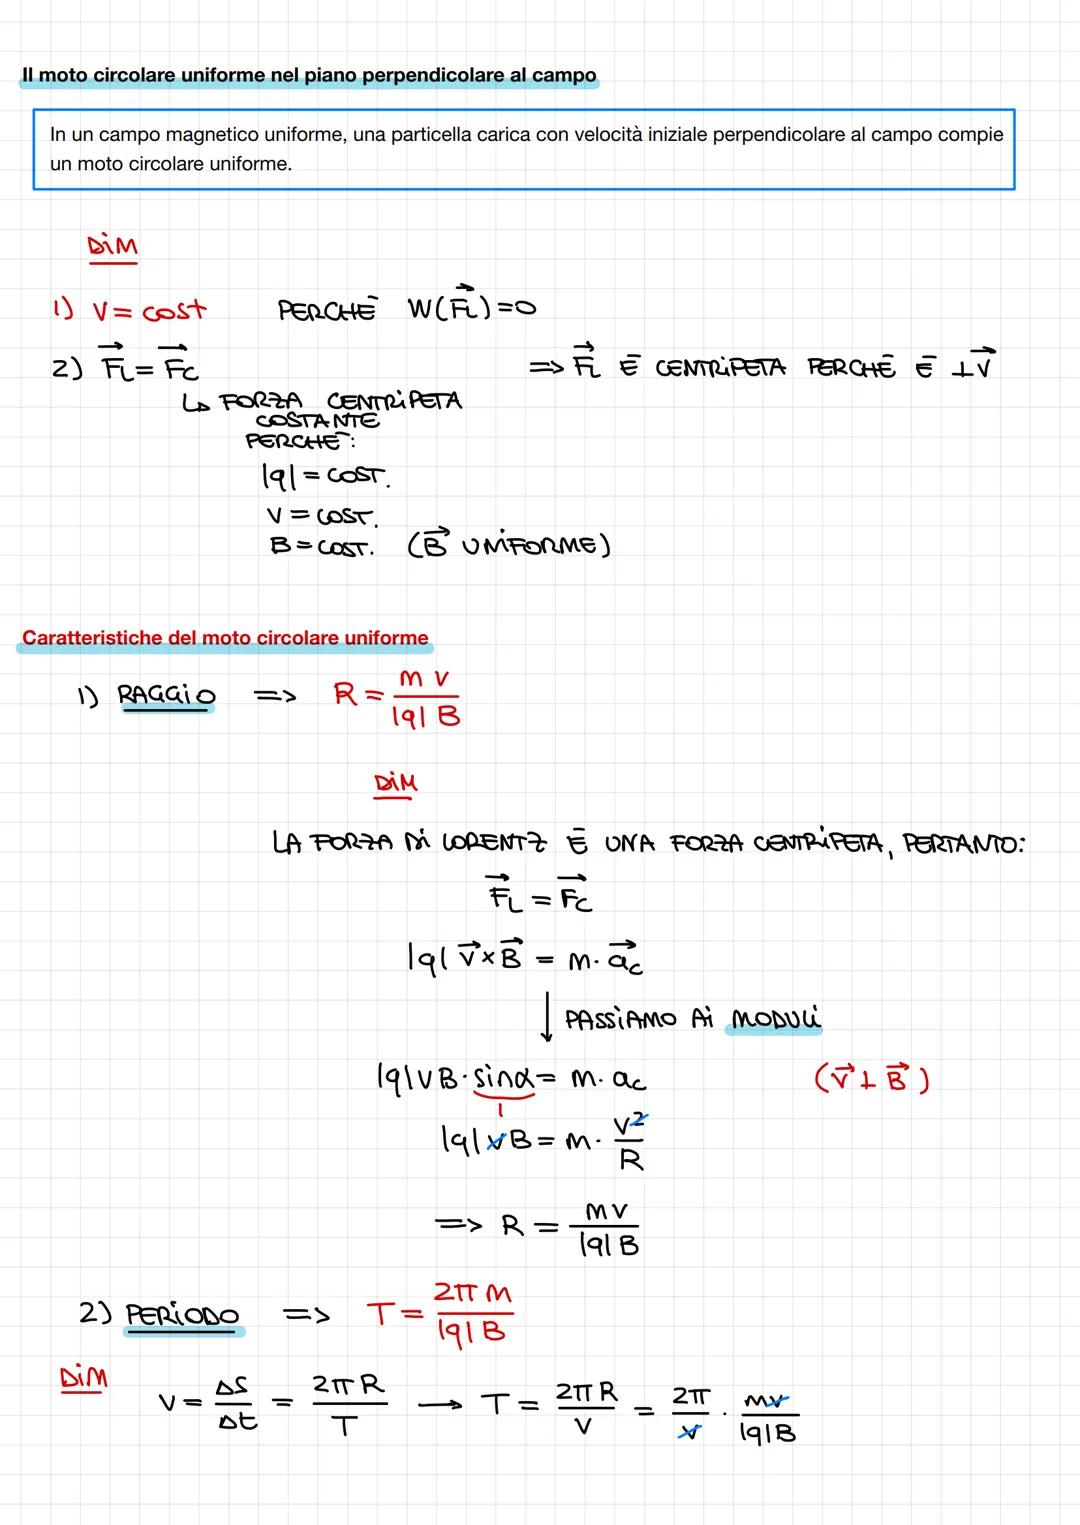 Il moto circolare uniforme nel piano perpendicolare al campo
In un campo magnetico uniforme, una particella carica con velocità iniziale perpendicolare al campo compie
un moto circolare uniforme.
DIM
1) V = cost PERCHÉ W(F⃗L) = 0
2) F⃗L = F⃗C => F⃗L È CENTRIPETA PERCHÉ È ⊥ V⃗
↳ FORZA CENTRIPETA
COSTANTE
PERCHÉ:
|q| = COST.
V = COST.
B = COST. (B⃗ UNIFORME)
Caratteristiche del moto circolare uniforme
1) RAGGIO => R = mv / |q|B
DIM
LA FORZA DI LORENTZ È UNA FORZA CENTRIPETA, PERTANTO:
F⃗L = F⃗C
|q| v⃗ × B⃗ = m · a⃗c
↓ PASSIAMO AI MODULI
|q|vB · sinα = m · ac (v⃗ ⊥ B⃗)
1
|q|vB = m · v²/R
=> R = mv / |q|B
2) PERIODO => T = 2πm / |q|B
DIM
v = Δs/Δt = 2πR/T → T = 2πR/v = 2π/v · mv/|q|B